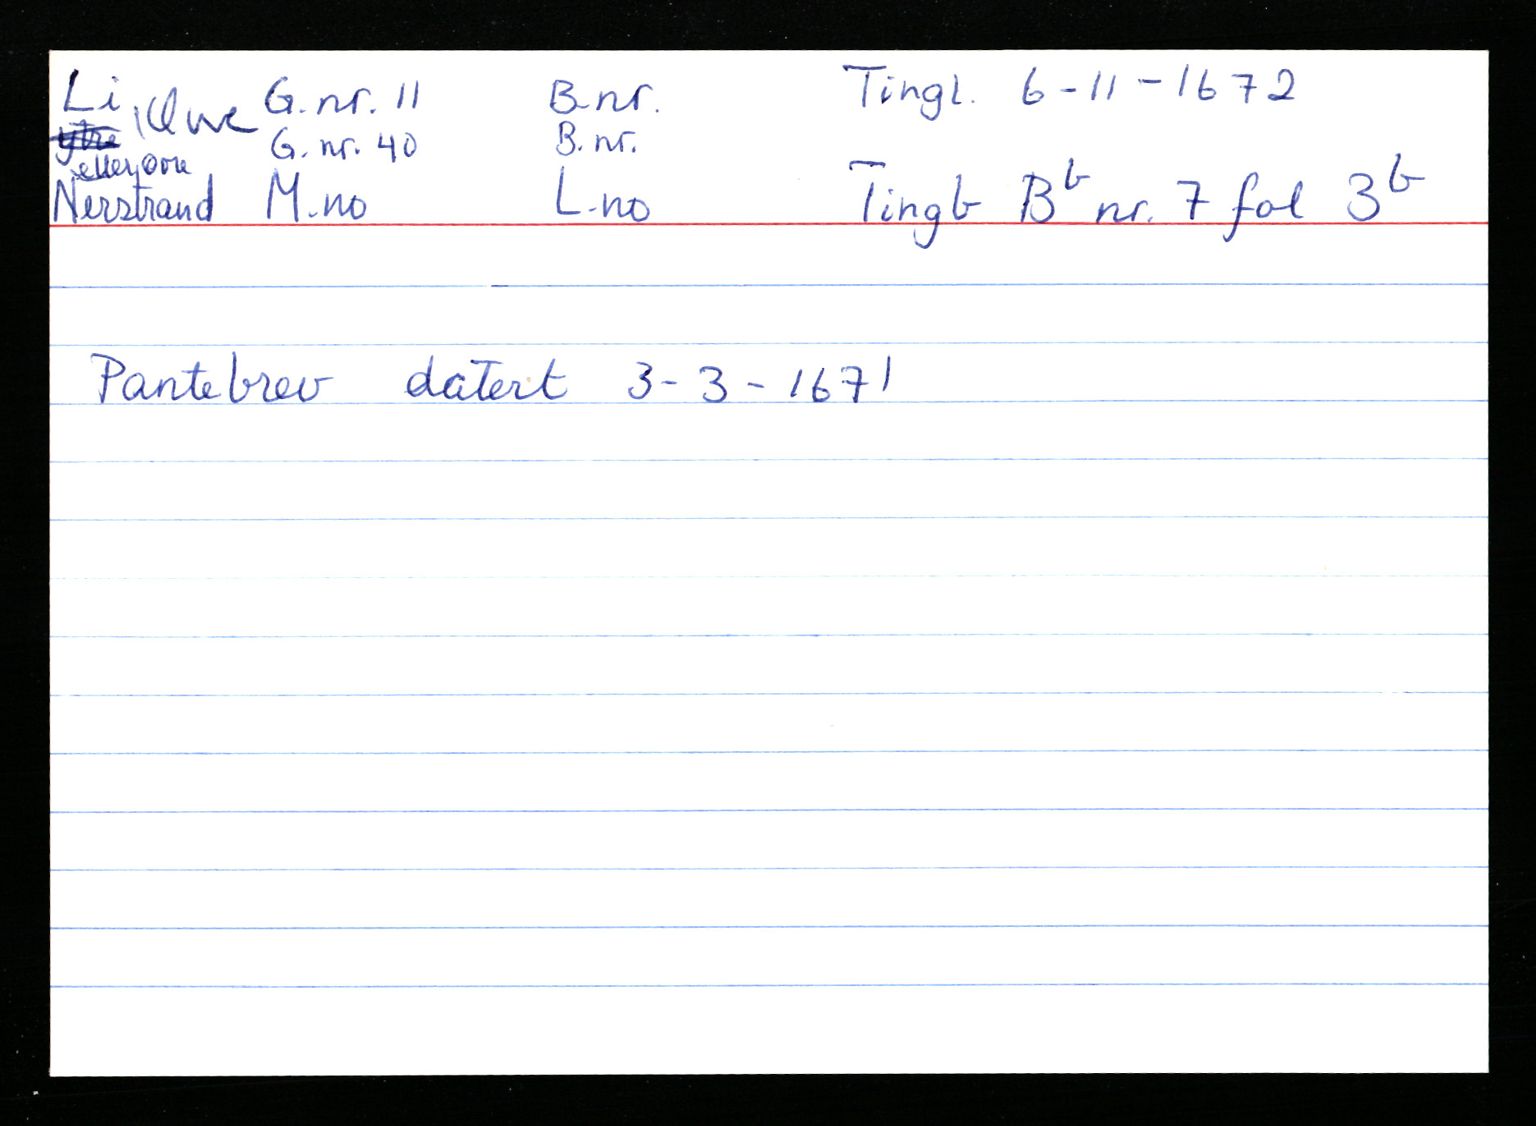 Li G. nr. 11 B. nr. Tingl. 6-11-1672
G. nr. 40 B. nr.
eller
Nerstrand M. no L. no Tingb Bb nr. 7 fol 3b
Pantebrev datert 3-3-1671